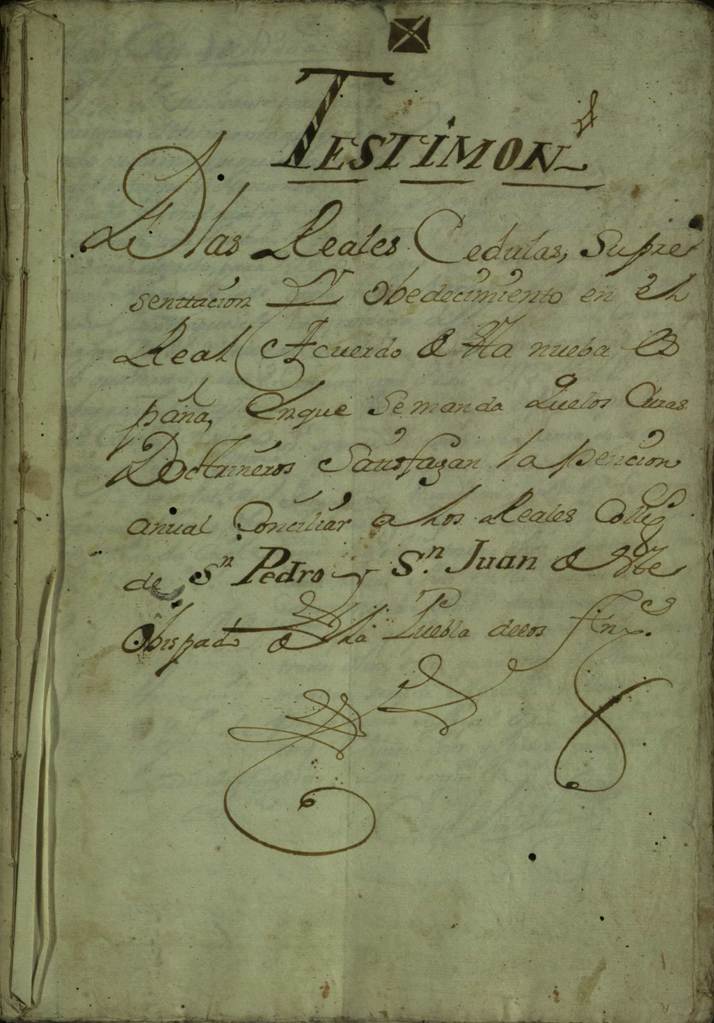 TESTIMON.º
De las Reales Cedulas, Su pre
senttacion Y obedecimiento en el
Real Acuerdo de esta nueba es
paña, en que se manda que los Curas
Doctrineros Sattisfagan la pencion
anual Conciliar a los Reales Coleg.s
de Sn. Pedro y Sn. Juan de este
Obispado de la Puebla de los Ang.s